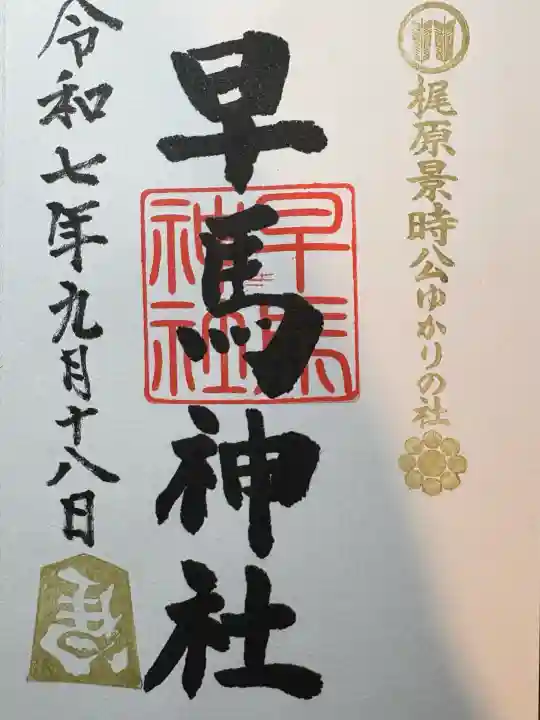 梶原景時公ゆかりの社
早馬神社
早馬
神社
令和七年九月十八日